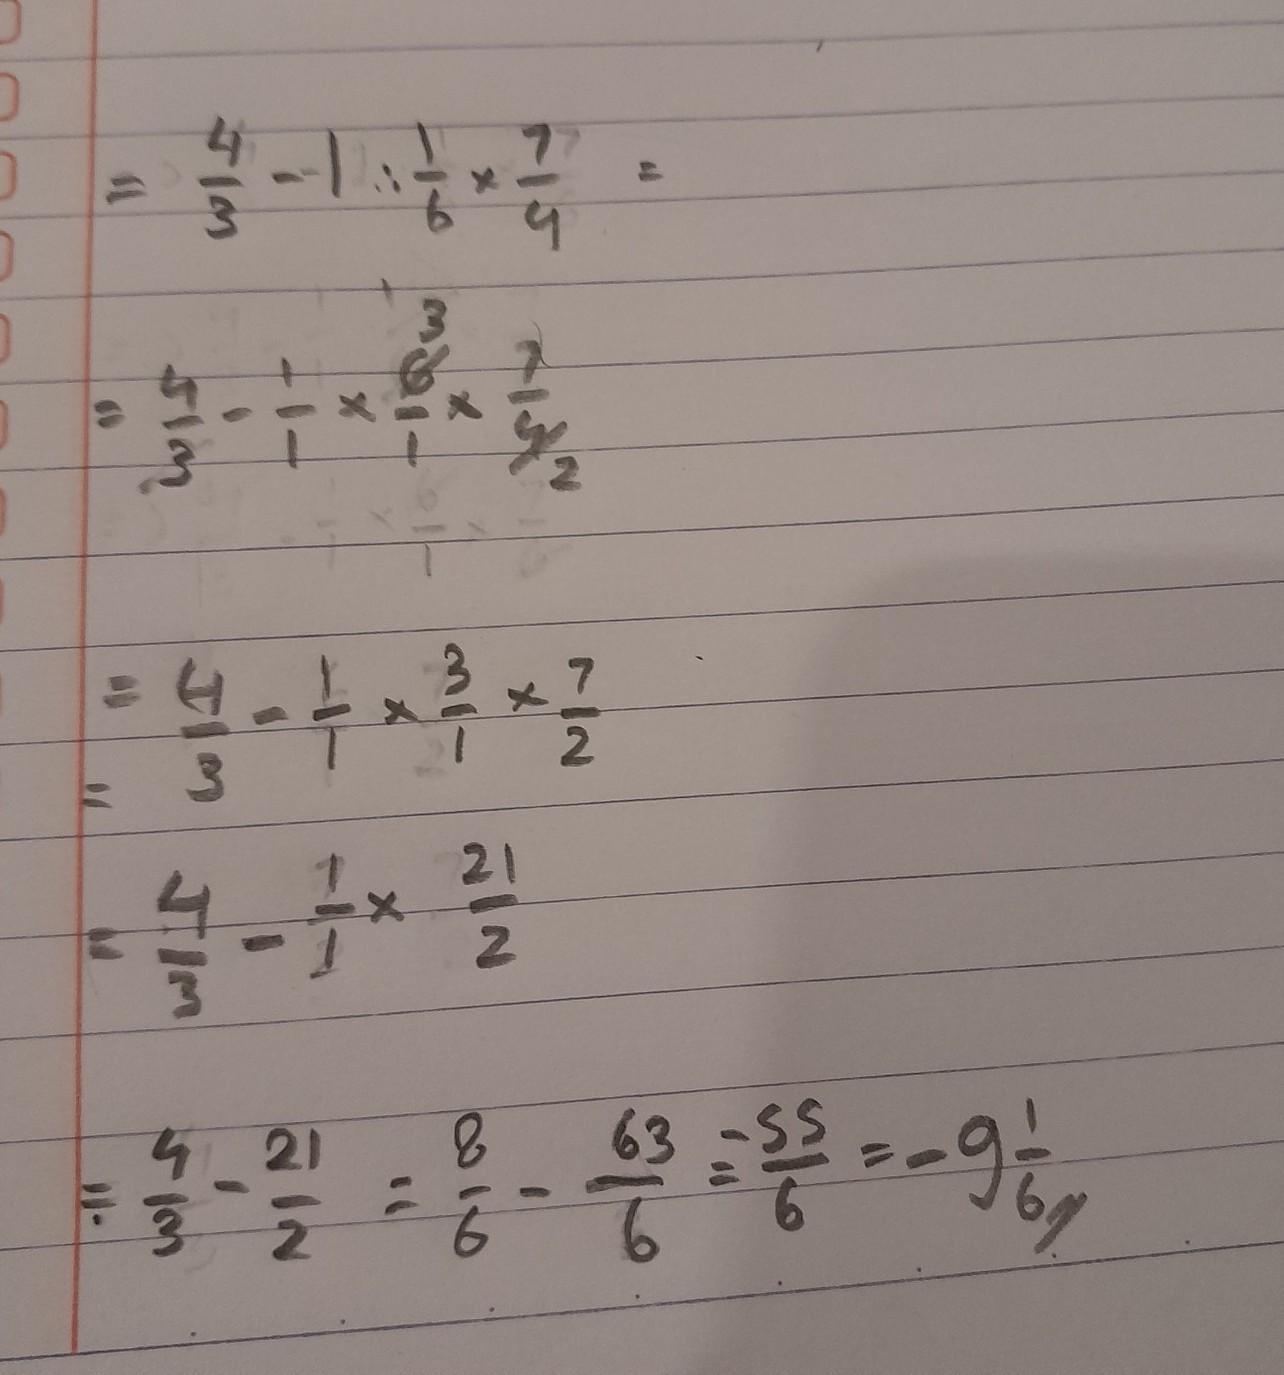 = 4/3 - 1 ÷ 1/6 × 7/4 =
= 4/3 - 1/1 × 6/1 × 7/4 3 2
= 4/3 - 1/1 × 3/1 × 7/2
=
= 4/3 - 1/1 × 21/2
= 4/3 - 21/2 = 8/6 - 63/6 = -55/6 = -9 1/6